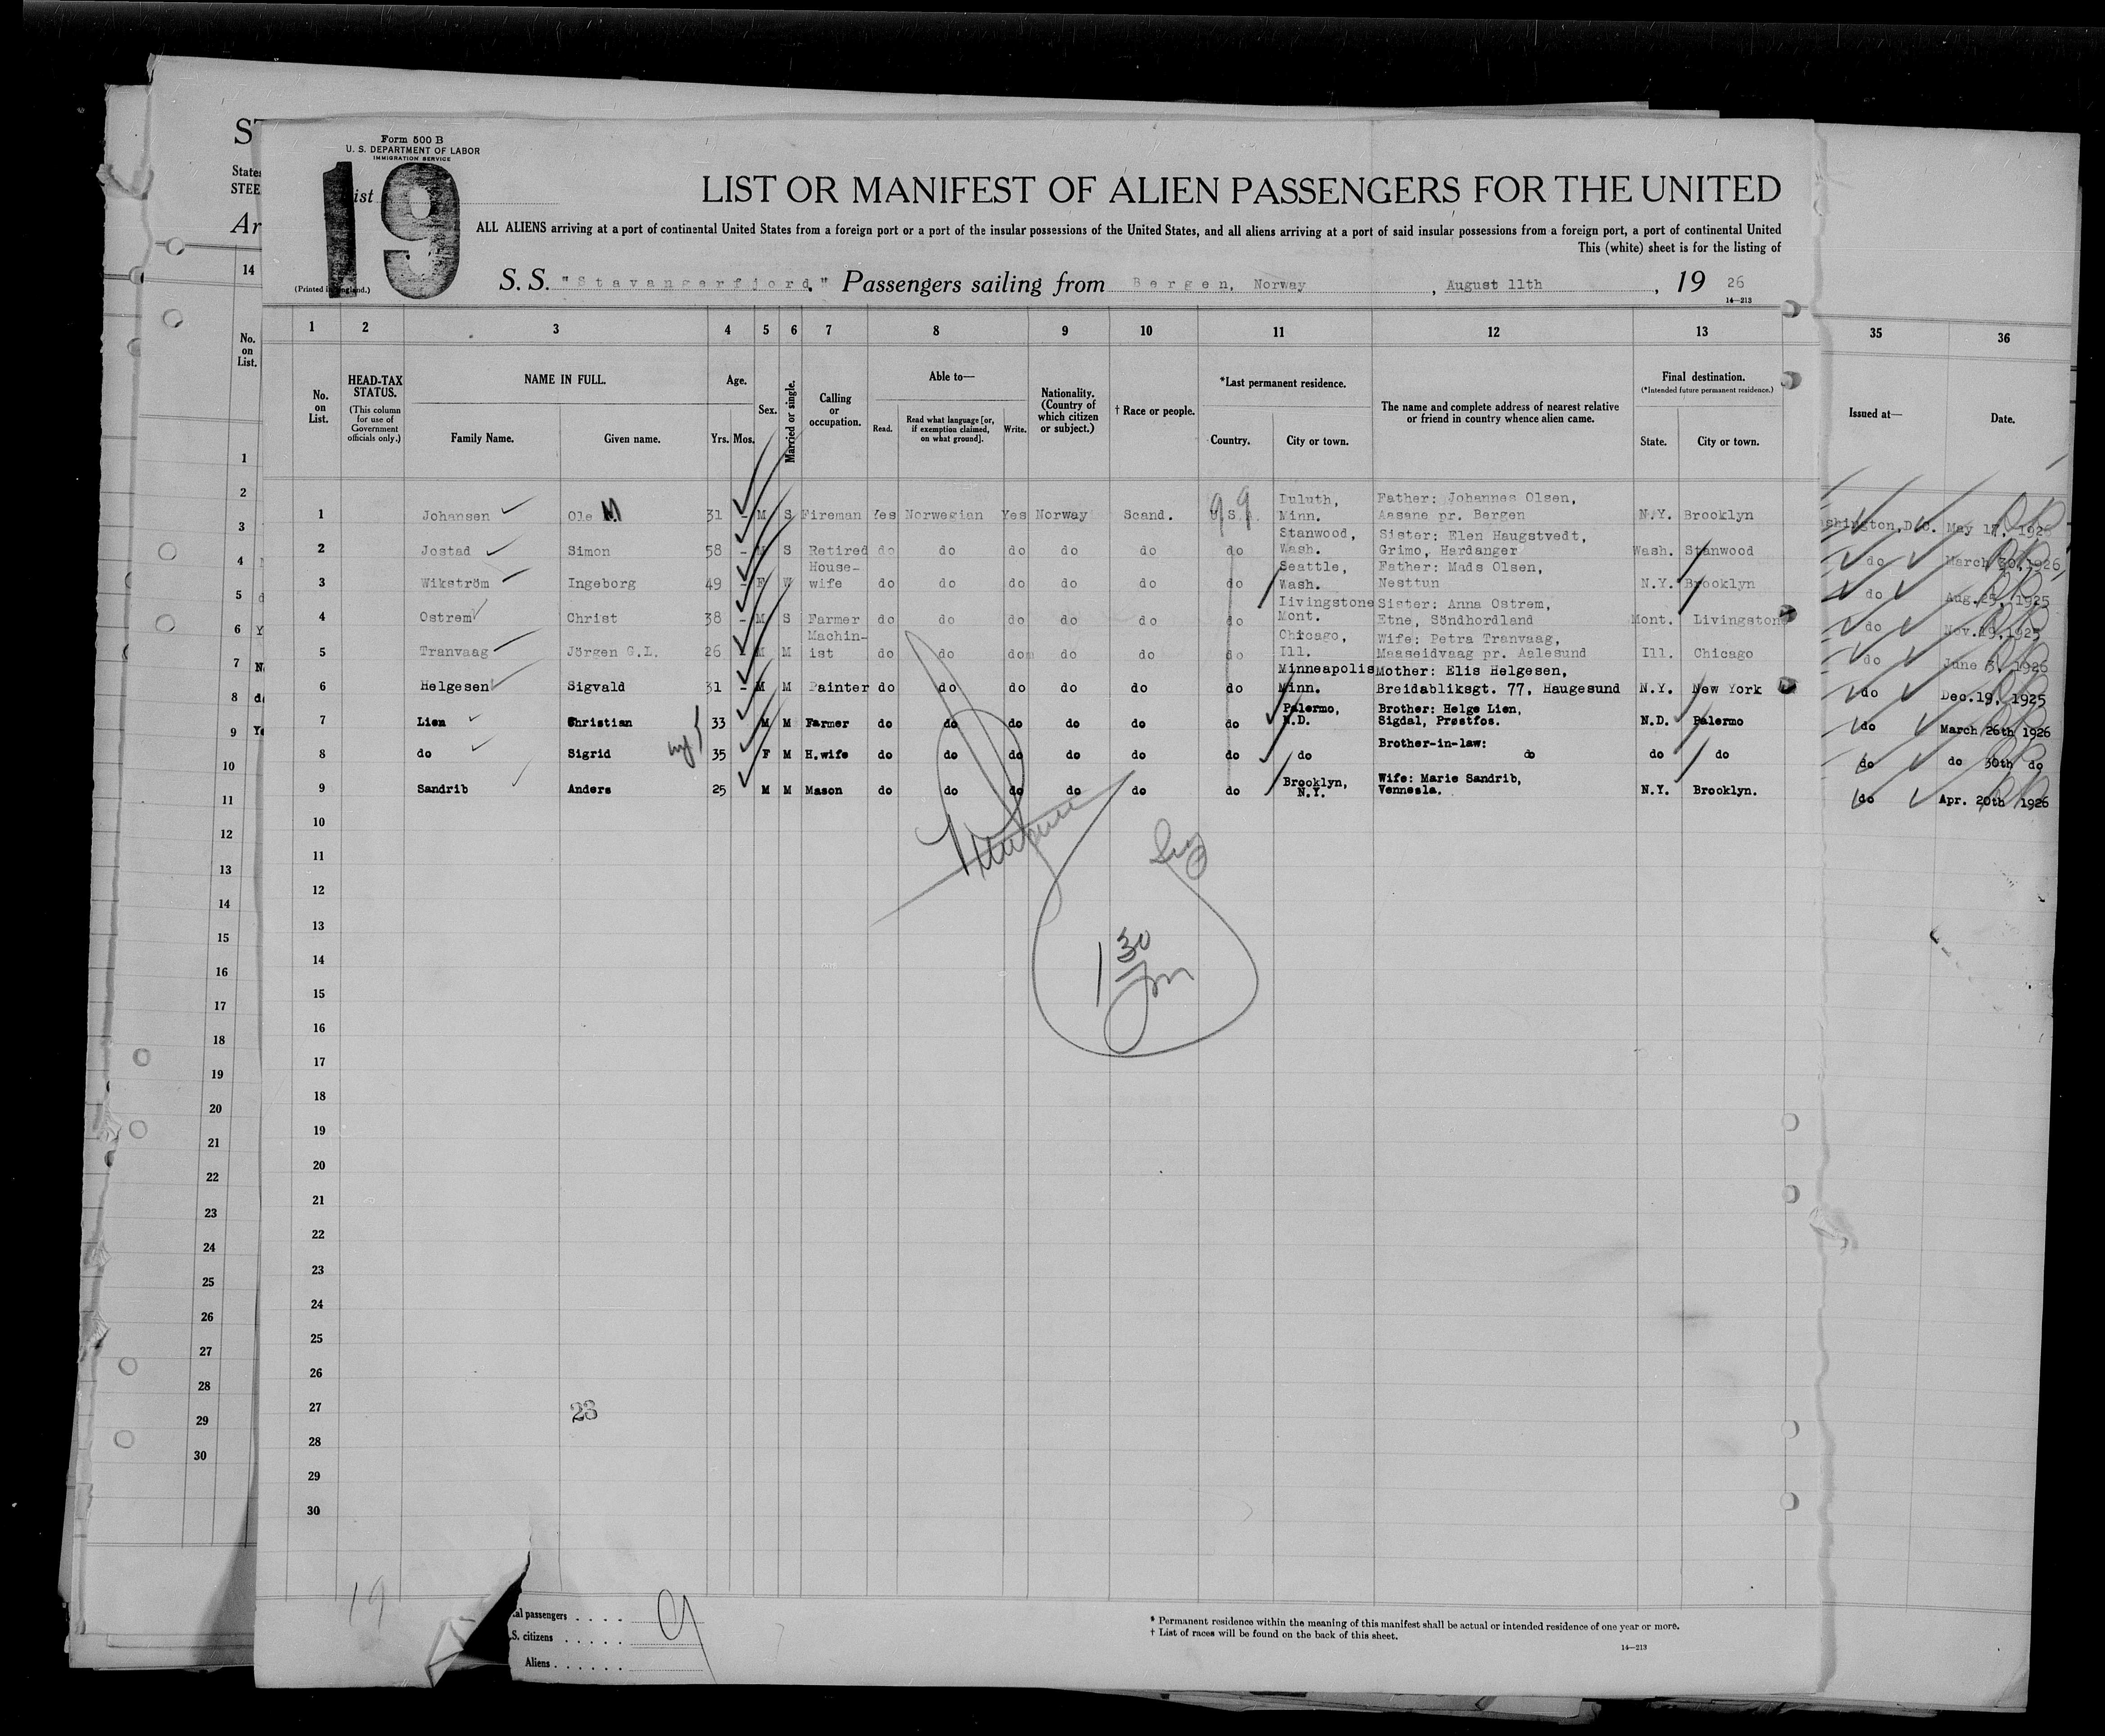 Form 500 B
U. S. DEPARTMENT OF LABOR
IMMIGRATION SERVICE
19
LIST OR MANIFEST OF ALIEN PASSENGERS FOR THE UNITED
ALL ALIENS arriving at a port of continental United States from a foreign port or a port of the insular possessions of the United States, and all aliens arriving at a port of said insular possessions from a foreign port, a port of continental United
This (white) sheet is for the listing of
S. S. "Stavangerfjord," Passengers sailing from Bergen, Norway, August 11th, 19 26
14—213
1 2 3 4 5 6 7 8 9 10 11 12 13 35 36
No. on List. HEAD-TAX STATUS. (This column for use of Government officials only.) NAME IN FULL. Family Name. Given name. Age. Yrs. Mos. Sex. Married or single. Calling or occupation. Able to— Read. Read what language [or, if exemption claimed, on what ground]. Write. Nationality. (Country of which citizen or subject.) † Race or people. *Last permanent residence. Country. City or town. The name and complete address of nearest relative or friend in country whence alien came. Final destination. (*Intended future permanent residence.) State. City or town. Issued at— Date.
1 Johansen Ole M 31 - M S Fireman Yes Norwegian Yes Norway Scand. U.S.A. Duluth, Minn. Father: Johannes Olsen, Aasane pr. Bergen N.Y. Brooklyn May 17, 1926
2 Jostad Simon 58 - M S Retired do do do do do do Stanwood, Wash. Sister: Elen Haugstvedt, Grimo, Hardanger Wash. Stanwood do March 30, 1926
3 Wikström Ingeborg 49 - F W House-wife do do do do do do Seattle, Wash. Father: Mads Olsen, Nesttun N.Y. Brooklyn do Aug. 25, 1925
4 Ostrem Christ 38 - M S Farmer do do do do do do Livingstone Mont. Sister: Anna Ostrem, Etne, Söndhordland Mont. Livingstone do Nov. 19, 1925
5 Tranvaag Jörgen G.L. 26 - M M Machin-ist do do do do do do Chicago, Ill. Wife: Petra Tranvaag, Maaseidvaag pr. Aalesund Ill. Chicago do June 3, 1926
6 Helgesen Sigvald 31 - M M Painter do do do do do do Minneapolis Minn. Mother: Elis Helgesen, Breidabliksgt. 77, Haugesund N.Y. New York do Dec. 19, 1925
7 Lien Christian 33 M M Farmer do do do do do do Palermo, N.D. Brother: Helge Lien, Sigdal, Prestfos. N.D. Palermo do March 26th 1926
8 do Sigrid 35 F M H.wife do do do do do do do Brother-in-law: do do do do do 30th do
9 Sandrib Anders 25 M M Mason do do do do do do Brooklyn, N.Y. Wife: Marie Sandrib, Vennesla. N.Y. Brooklyn. do Apr. 20th 1926
10
11
12
13
14
15
16
17
18
19
20
21
22
23
24
25
26
27
28
29
30
1 30
23
19
passengers . . . . 9
S. citizens . . . . .
Aliens . . . . . .
* Permanent residence within the meaning of this manifest shall be actual or intended residence of one year or more.
† List of races will be found on the back of this sheet.
14—213